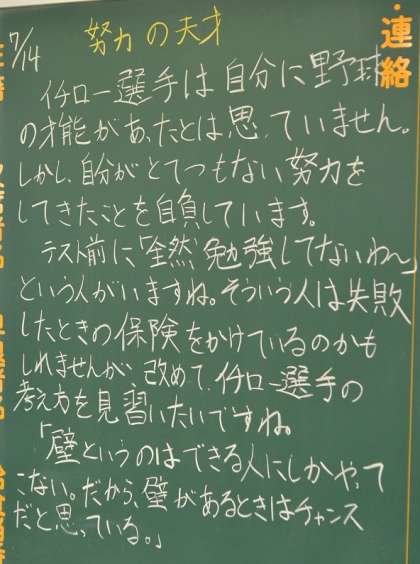 連絡
7/14
努力の天才
イチロー選手は自分に野球
の才能があったとは思っていません。
しかし、自分がとてつもない努力を
してきたことを自負しています。
テスト前に「全然勉強してないわ〜」
という人がいますね。そういう人は失敗
したときの保険をかけているのかも
しれませんが、改めて、イチロー選手の
考え方を見習いたいですね。
「壁というのはできる人にしかやって
こない。だから、壁があるときはチャンス
だと思っている。」